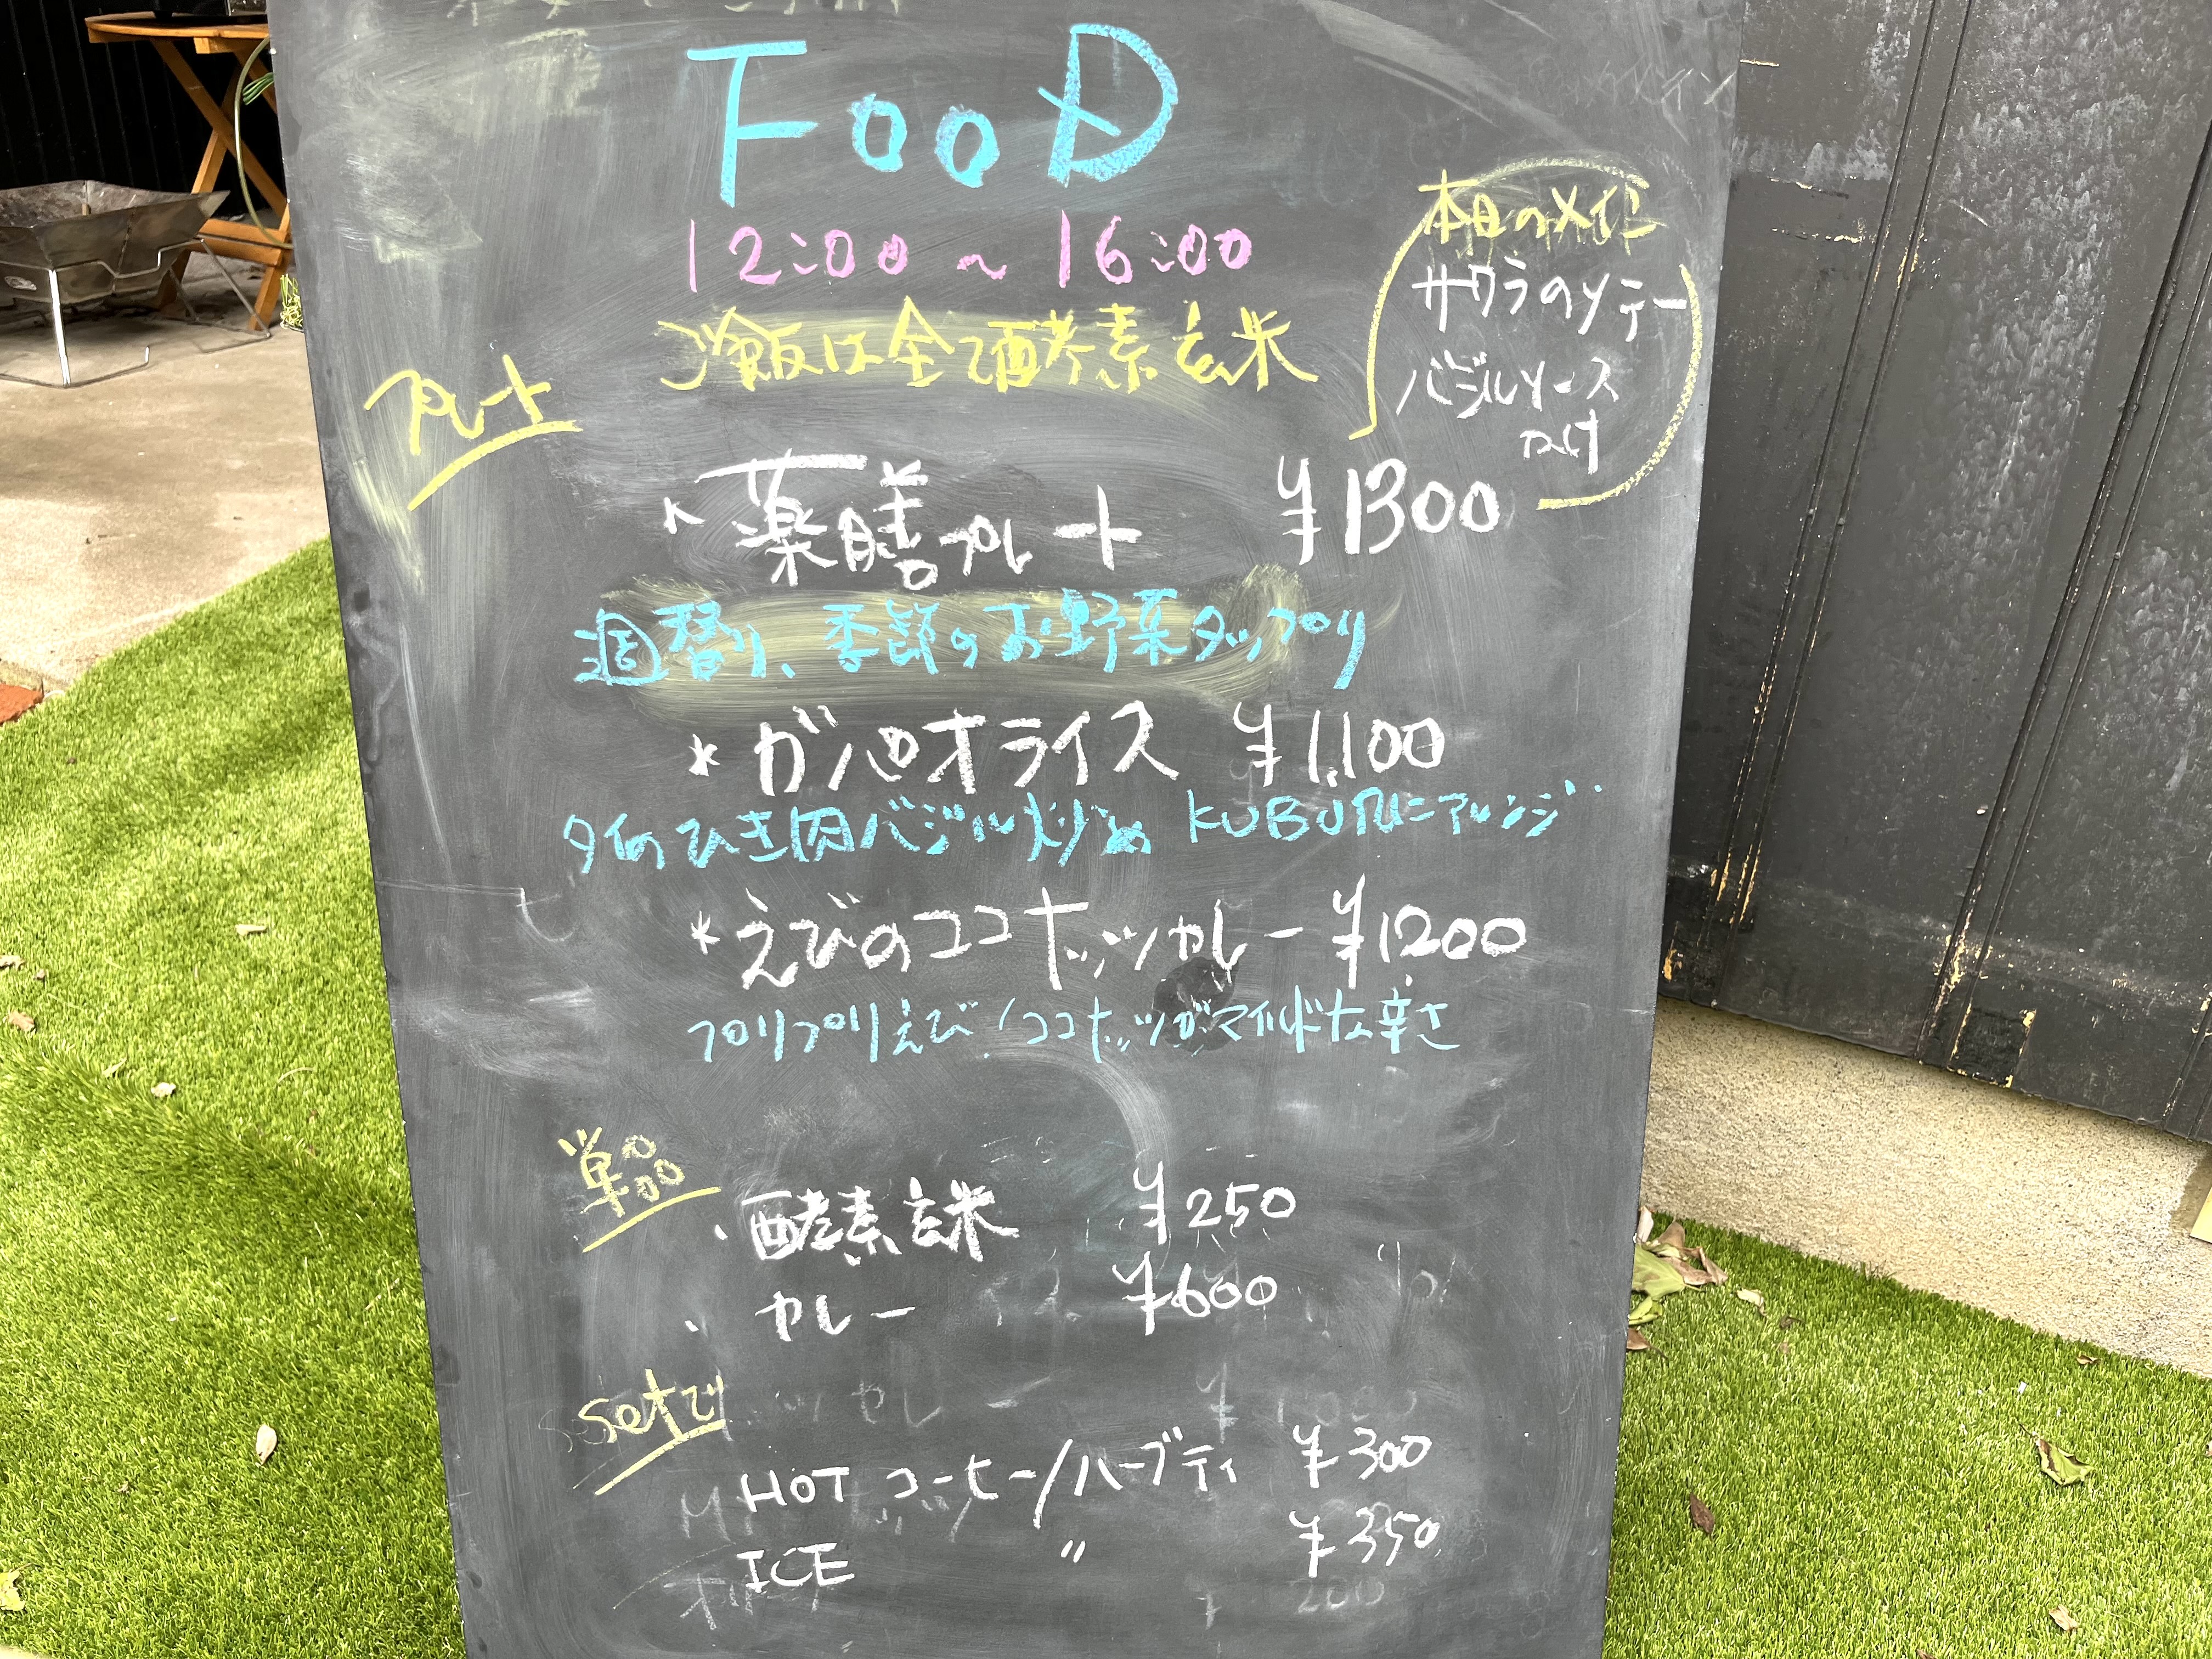 FOOD
12:00 ~ 16:00
ご飯は全て酵素玄米
本日のメイン
サワラのソテー
バジルソース
つけ
プレート
* 薬膳プレート ¥1300
週替り、季節のお野菜タップリ
* ガパオライス ¥1,100
タイのひき肉バジル炒め KUBU風にアレンジ
* えびのココナッツカレー ¥1200
プリプリえび！ココナッツがマイルドな辛さ
単品
・酵素玄米 ¥250
・カレー ¥600
setで
HOT コーヒー/ハーブティ ¥300
ICE 〃 ¥350